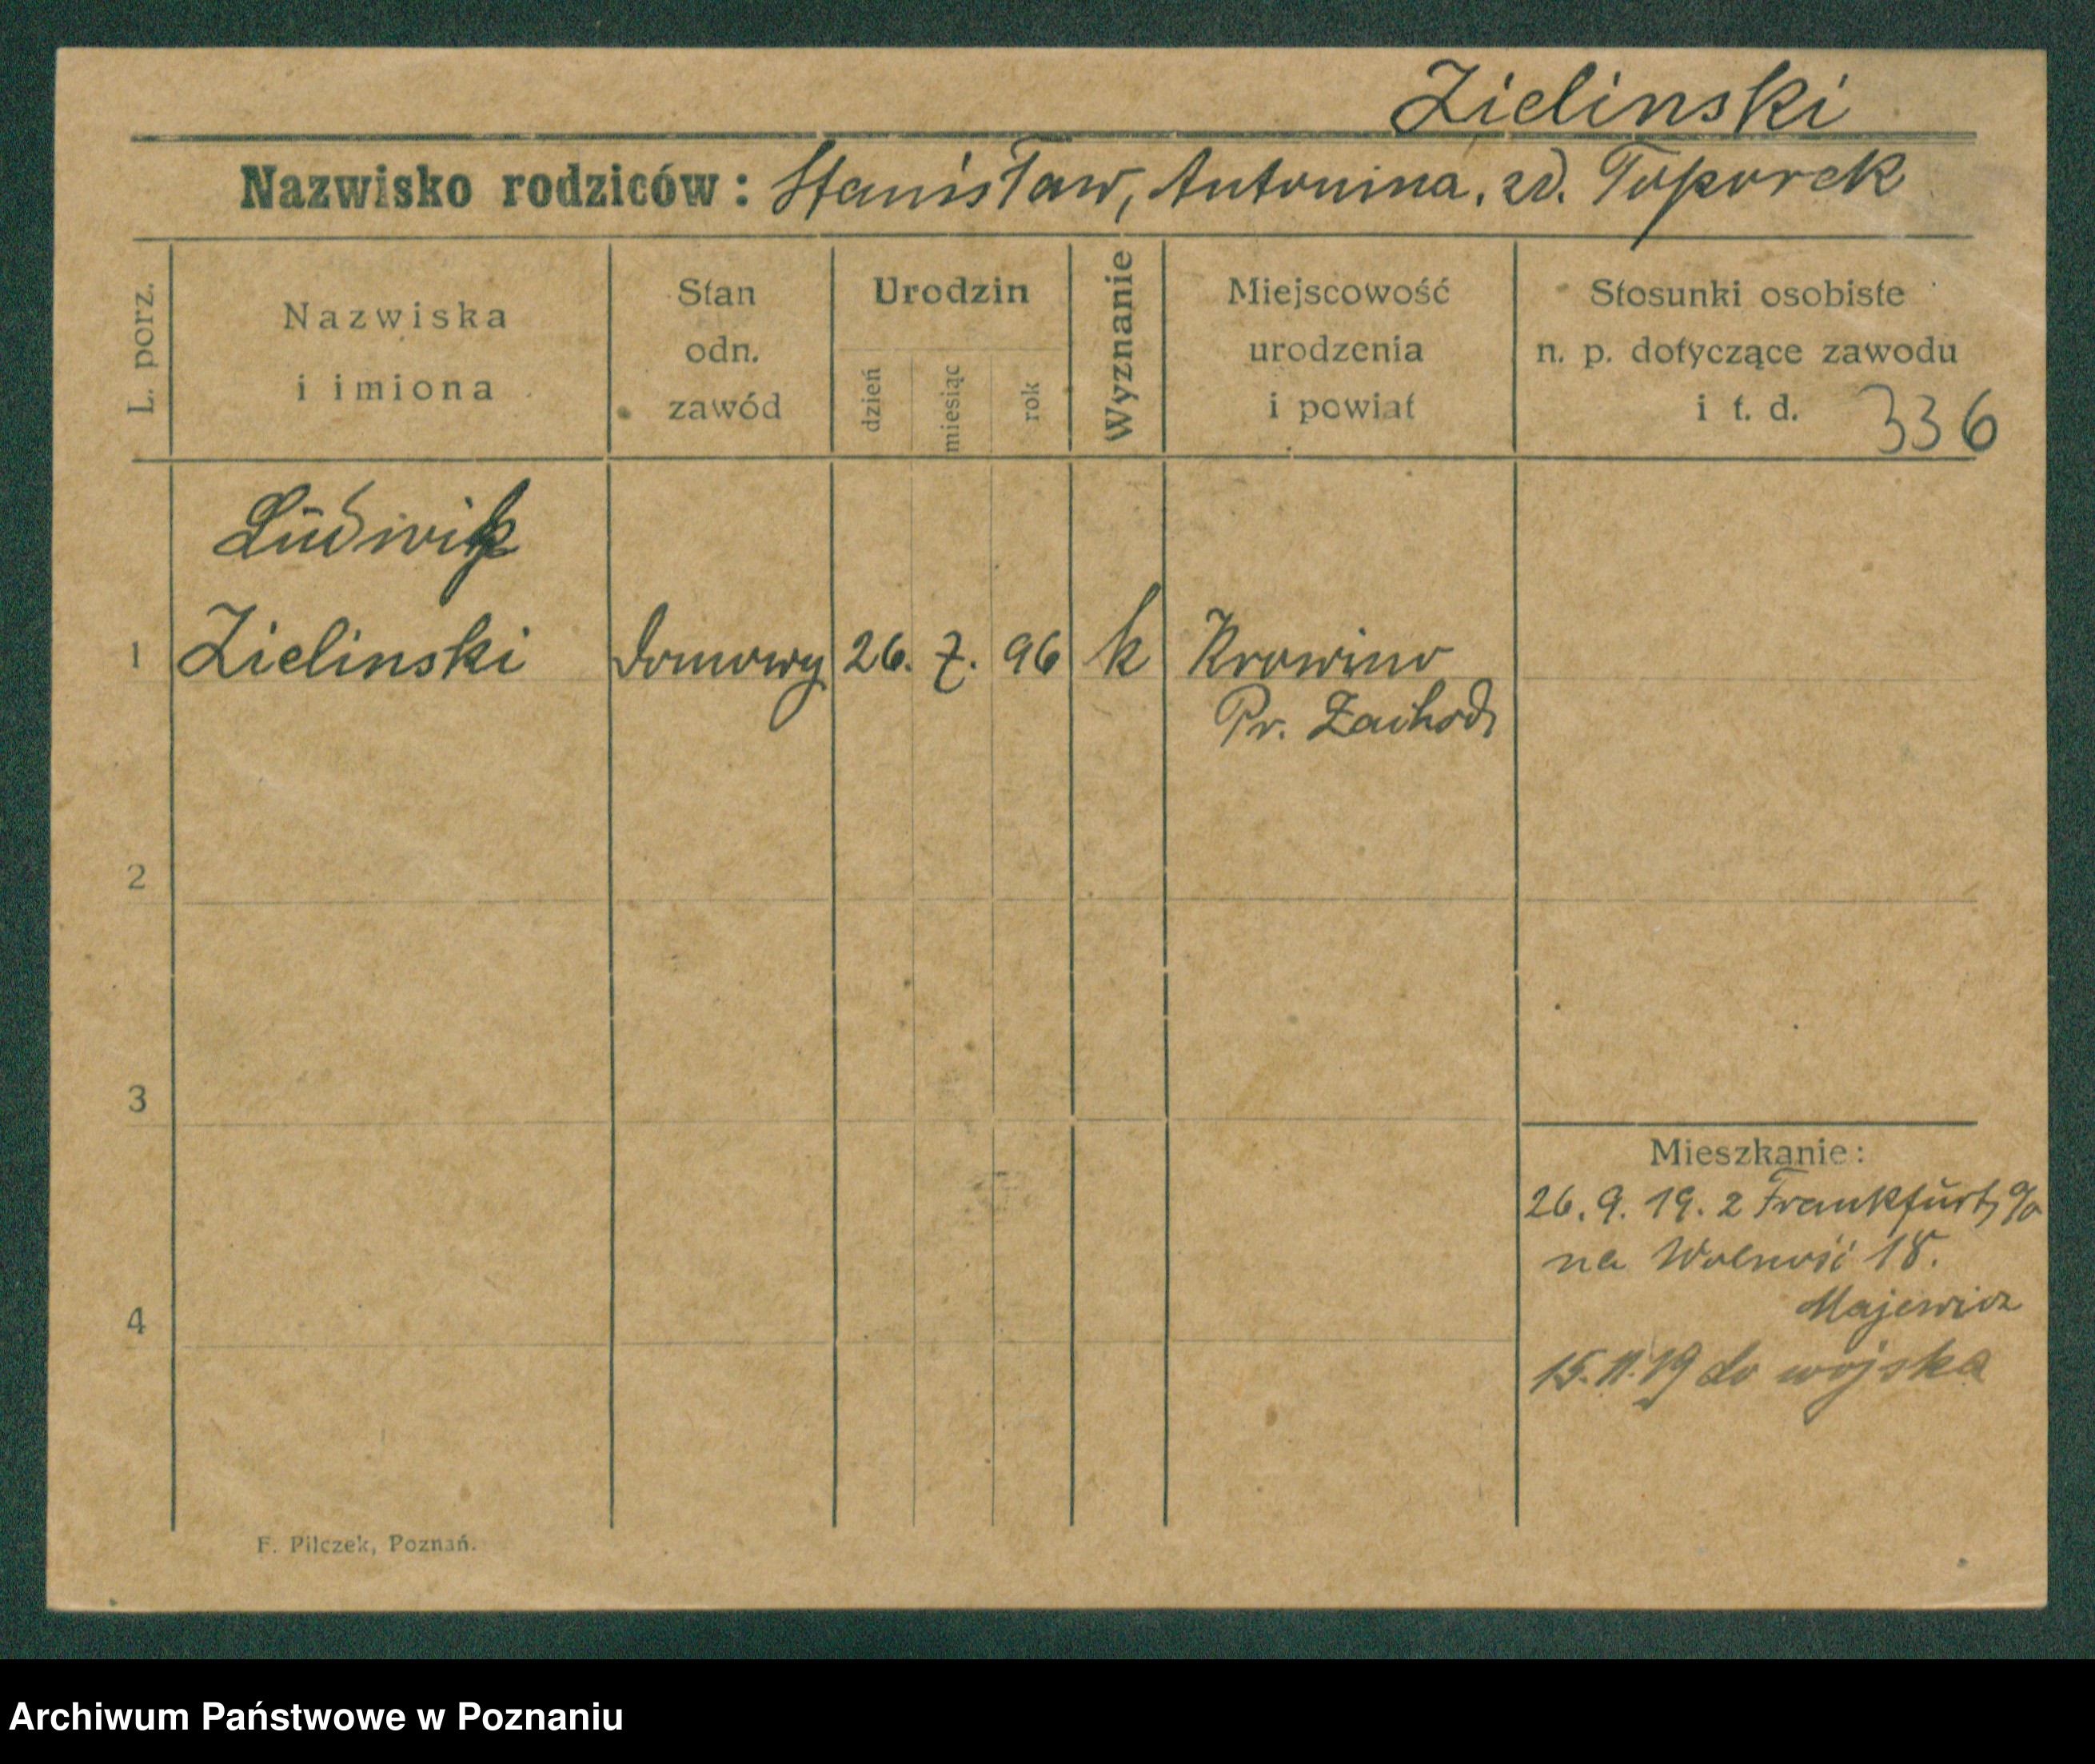 Zielinski
Nazwisko rodziców: Stanisław, Antonina, zd. Toporek
L. porz.
Nazwiska
i imiona
Stan
odn.
zawód
Urodzin
dzień
miesiąc
rok
Wyznanie
Miejscowość
urodzenia
i powiat
Stosunki osobiste
n. p. dotyczące zawodu
i t. d.
336
Ludwik
1 Zielinski domowy 26. 7. 96 k Krowino
Pr. Zachod
2
3
4
Mieszkanie:
26. 9. 19. z Frankfurt, a/o
na Wolność 18.
Majewicz
15.11.19 do wojska
F. Pilczek, Poznań.
Archiwum Państwowe w Poznaniu